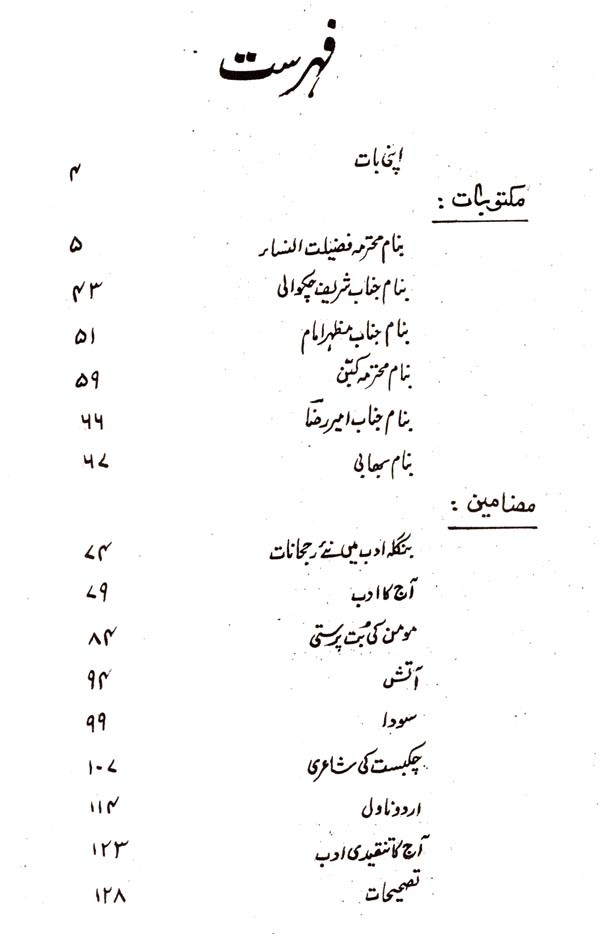 فہرست
اپنی بات ۴
مکتوبات :
بنام محترمہ فضیلت النساء ۵
بنام جناب شریف چکوالی ۴۳
بنام جناب مظہر امام ۵۱
بنام محترمہ کبّن ۵۹
بنام جناب امیر رضا ۶۶
بنام بھابی ۶۷
مضامین :
بنگلہ ادب میں نئے رجحانات ۷۴
آج کا ادب ۷۹
مومن کی بُت پرستی ۸۴
آتش ۹۴
سودا ۹۹
چکبست کی شاعری ۱۰۷
اردو ناول ۱۱۴
آج کا تنقیدی ادب ۱۲۳
تصحیحات ۱۲۸